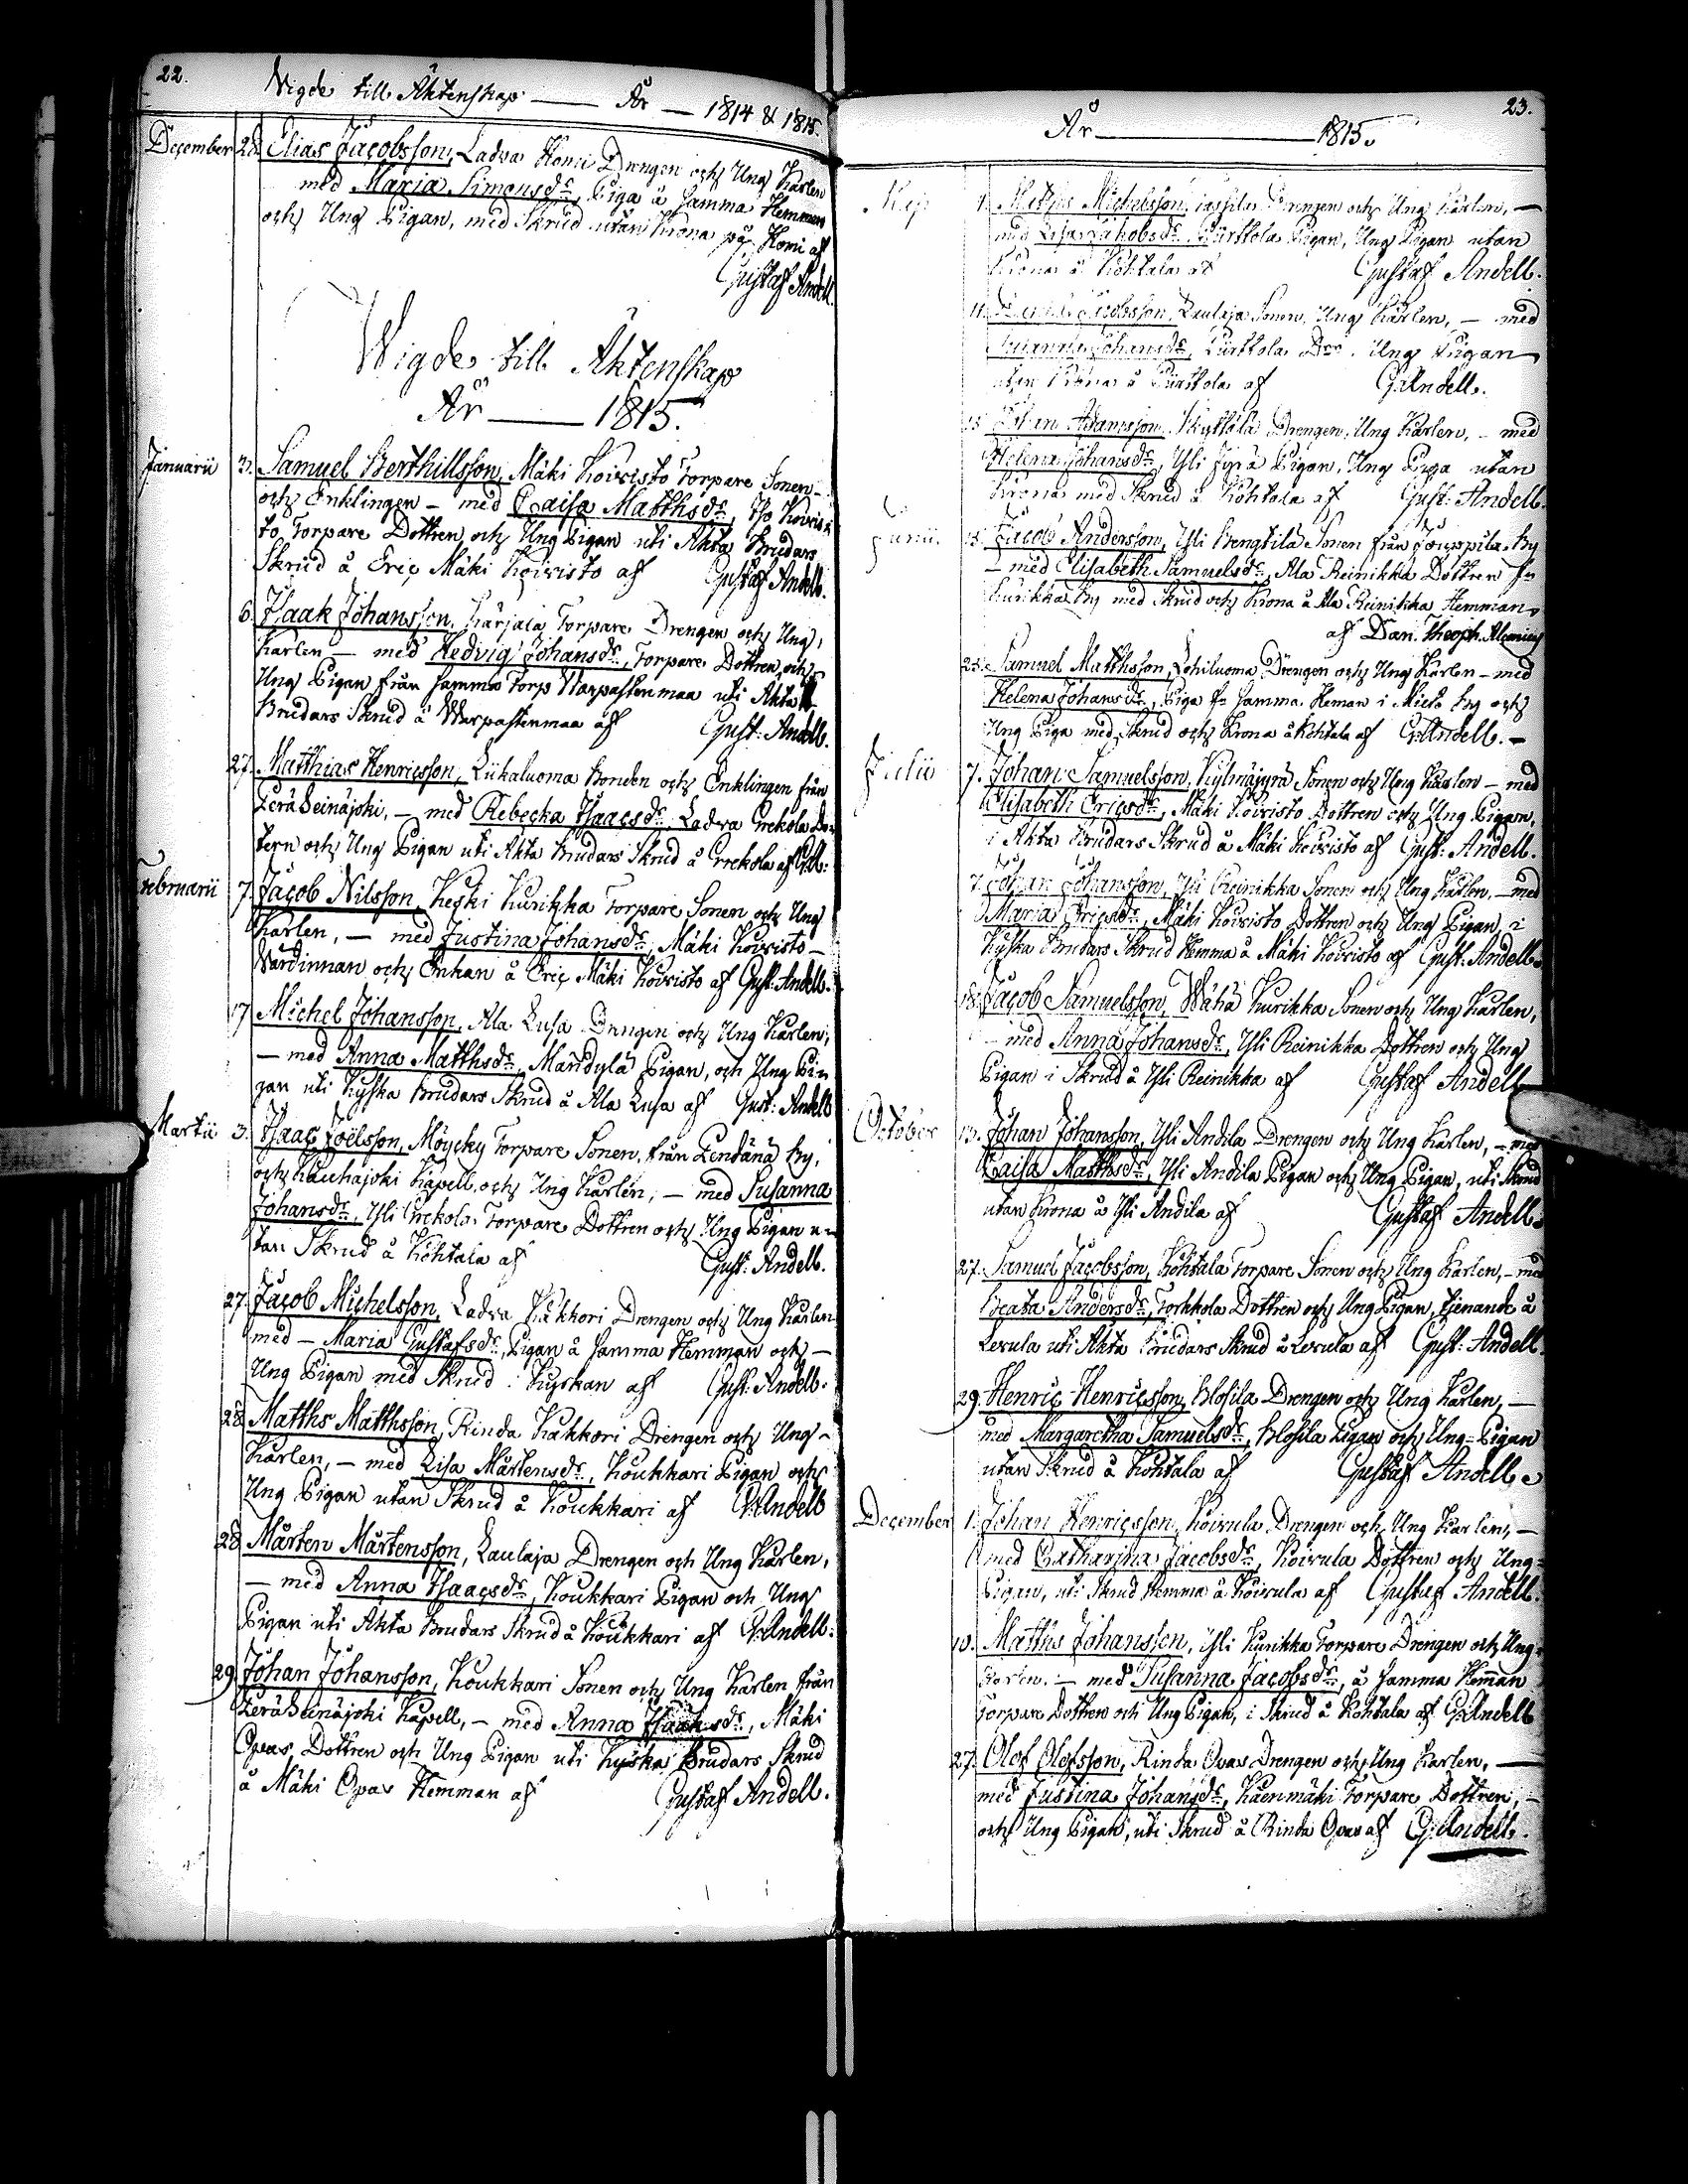 22.
Vigde till Äktenskap — År — 1814 & 1815.
December 28. Elias Jacobsson, Ladva Homi Drengen och Ung Karlen
med Maria Simonsdr, Piga å samma Hemman
och Ung Pigan, med Skrud utan Krona på Homi af
Gustaf Andell.
Wigde till Äktenskap
År — 1815.
Januarii 3. Samuel Berthillsson, Mäki Koivisto Torpare Sonen
och Enklingen – med Caisa Matthsdr, Iso Koivis-
to Torpare Dottren och Ung Pigan uti Äkta Brudars
Skrud å Eric Mäki Koivisto af Gustaf Andell.
6. Isaak Johansson, Karjala Torpare Drengen och Ung
Karlen — med Hedvig Johansdr, Torpare Dottren och
Ung Pigan från samma Torp Warpastenmaa uti Äkta
Brudars Skrud å Warpastenmaa af Gust: Andell.
27. Matthias Henricsson, Liikaluoma Bonden och Enklingen från
Peräseinäjoki, – med Rebecka Isaacsdr, Ladva Crekola Do-
ttern och Ung Pigan uti Äkta Brudars Skrud å Crekola af G.A:
Februarii 7. Jacob Nilsson, Keski Kurikka Torpare Sonen och Ung
Karlen, — med Justina Johansdr, Mäki Koivisto –
Värdinnan och Enkan å Eric Mäki Koivisto af Gust: Andell.
17. Michel Johansson, Ala Lusa Drengen och Ung Karlen,
— med Anna Matthsdr, Mandylä Pigan, och Ung Pi-
gan uti Kyska Brudars Skrud å Ala Lusa af Gust: Andell
Martii 3. Isaac Joëlsson, Möycky Torpare Sonen, från Pendänä by,
och Kauhajoki Kapell, och Ung Karlen, — med Susanna
Johansdr, Yli Crekola Torpare Dottren och Ung Pigan u-
tan Skrud å Kohtala af Gust: Andell.
27. Jacob Michelsson, Ladva Kakkori Drengen och Ung Karlen
med — Maria Gustafsdr, Pigan å samma Hemman och –
Ung Pigan med Skrud i Kyrkan af Gust: Andell.
28. Matths Matthsson, Rinda Kakkori Drengen och Ung –
Karlen, – med Lisa Mårtensdr, Koukkari Pigan och
Ung Pigan utan Skrud å Koukkari af G:Andell
28. Mårten Mårtensson, Laulaja Drengen och Ung Karlen,
— med Anna Isaacsdr, Koukkari Pigan och Ung
Pigan uti Äkta Brudars Skrud å Koukkari af G:Andell.
29. Johan Johansson, Koukkari Sonen och Ung Karlen från
Peräseinäjoki Kapell, – med Anna Isaaksdr, Mäki
Opas Dottren och Ung Pigan uti Kyska Brudars Skrud
å Mäki Opas Hemman af Gustaf Andell.
23.
År — 1815.
Maji Matths Michelsson, Drengen och Ung Karlen, —
med Lisa Jakobsdr, Piirttola Pigan, Ung Pigan utan
Krona å Kohtala af Gustaf Andell.
11. Jacobsson, Laulaja Sonen, Ung Karlen, – med
Susanna Johansdr, Piirttola Dr. Ung Pigan
utan Krona å Piirttola af G:Andell.
15. Johan Adamsson, Skyttälä Drengen, Ung Karlen, – med
Helena Johansdr, Yli Jyrä Pigan, Ung Piga utan
Krona med Skrud å Kohtala af Gust: Andell.
Junii. 13. Jacob Andersson, Yli Bengtilä Sonen från Jouppila by
– med Elisabeth Samuelsdr, Ala Reinikka Dottren fr
Kurikka by med Skrud och Krona å Ala Reinikka Hemman
af Dan. Theoph. Alcenius
25. Samuel Matthsson, Lohiluoma Drengen och Ung Karlen – med
Helena Johansdr, Piga fr samma Heman i Mieto by och
Ung Piga med Skrud och Krona å Kohtala af G:Andell. –
Julii 7. Johan Samuelsson, Kylmäjyrä Sonen och Ung Karlen – med
Elisabeth Ericsdr, Mäki Koivisto Dottren och Ung Pigan,
i Äkta Brudars Skrud å Mäki Koivisto af Gust: Andell.
7. Johan Johansson, Yli Reinikka Sonen och Ung Karlen. – med
Maria Ericsdr, Mäki Koivisto Dottren och Ung Pigan, i
Kyska Brudars Skrud Hemma å Mäki Koivisto af Gust: Andell.
18. Jacob Samuelsson, Wähä Kurikka Sonen och Ung Karlen,
– med Anna Johansdr, Yli Reinikka Dottren och Ung
Pigan i Skrud å Yli Reinikka af Gustaf Andell
October 13. Johan Johansson, Yli Andila Drengen och Ung Karlen, – med
Caisa Matthsdr, Yli Andila Pigan och Ung Pigan, uti Skrud
utan Krona å Yli Andila af Gustaf Andell.
27. Samuel Jacobsson, Kohtala Torpare Sonen och Ung Karlen, – med
Beata Andersdr, Torkkola Dottren och Ung Pigan, tjenande å
Levula uti Äkta Brudars Skrud å Levula af Gust: Andell.
29. Henric Henricsson, Blosila Drengen och Ung Karlen, —
med Margaretha Samuelsdr, Blosila Pigan och Ung-Pigan
utan Skrud å Kohtala af Gustaf Andell.
December 1. Johan Henricsson, Koivula Drengen och Ung Karlen, —
med Catharina Jacobsdr, Koivula Dottren och Ung-
Pigan, uti Skrud Hemma å Koivula af Gustaf Andell.
10. Matths Johansson, Yli Kurikka Torpare Drengen och Ung-
Karlen. – med Susanna Jacobsdr, å samma Hemman
Torpare Dottren och Ung Pigan, i Skrud å Kohtala af G:Andell
27. Olof Olofsson, Rinda Opas Drengen och Ung Karlen, —
med Justina Johansdr, Kaenmäki Torpare Dottren, –
och Ung Pigan, uti Skrud å Rinda Opas af G:Andell.